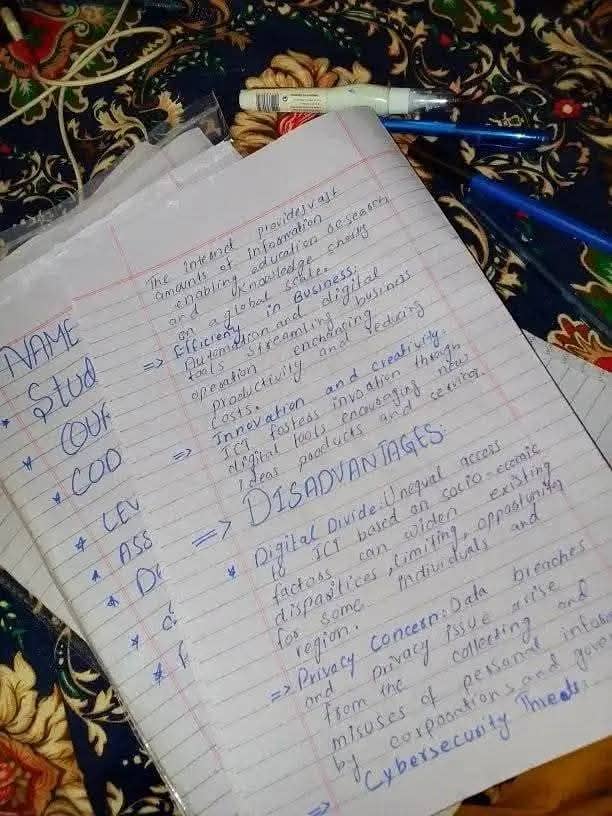 The internet provides vast
amounts of Information
enabling education research
and knowledge sharing
on a global scale.
=> Efficieny in Business:
Automation and digital
tools streamling business
operation enchanging
productivity and reducing
costs.
=> Innovation and creativity.
ICT fostess invoation through
digital tools encouraging new
Ideas products and
=> DISADVANTAGES:
* Digital Divide: Unequal access
to ICT based on socio-economic
factors can widen existing
disparitices, limiting, opportunity
for some individuals and
region.
=> Privacy Concern: Data breaches
and privacy issue arise
from the collecting and
misuses of personal
by corporations and
=> Cybersecurity Threats:
NAME
* Stud
* COUR
* COD
* LEV
* ASS